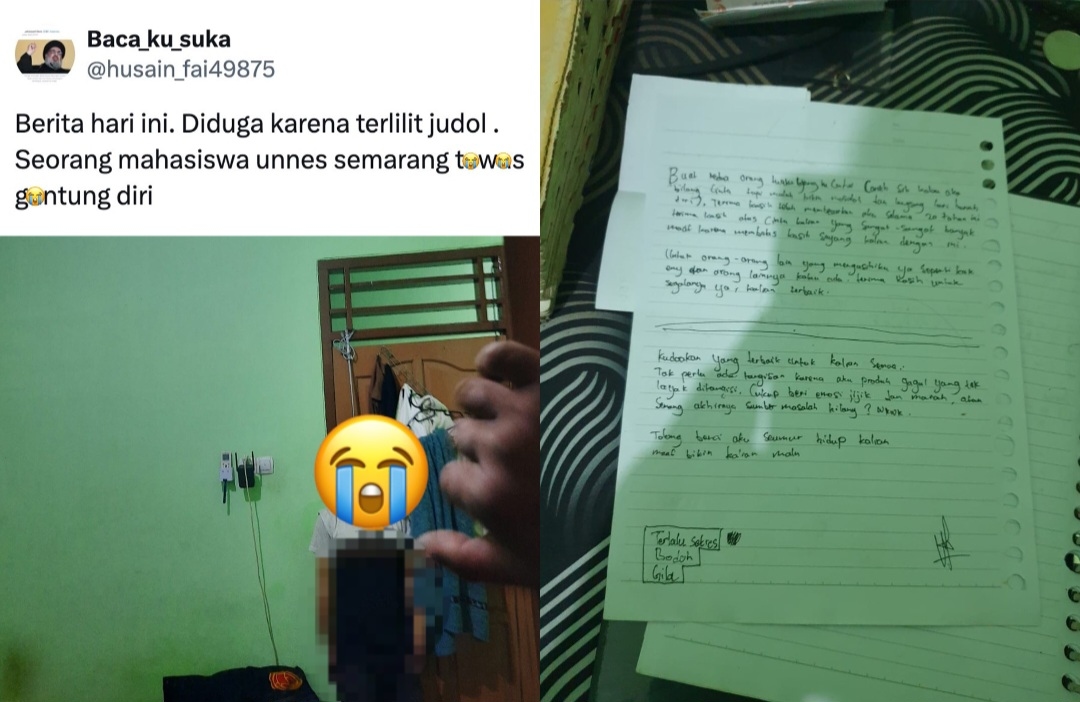 Baca_ku_suka
@husain_fai49875
Berita hari ini. Diduga karena terlilit judol .
Seorang mahasiswa unnes semarang t😭w😭s
g😭ntung diri
Buat orang
bilang cinta tapi malah
Terima kasih telah aku selama 20 tahun ini
terima kasih atas cinta kalian yang sangat-sangat banyak
maaf karena membalas kasih sayang kalian dengan ini.
Untuk orang-orang lain yang ya seperti
dan orang lainnya kalau ada. terima kasih untuk
segalanya ya, kalian terbaik.
Kudoakan yang terbaik untuk kalian semua.
Tak perlu ada tangisan karena aku produk gagal yang tak
layak ditangisi. Cukup beri emosi jijik dan marah, atau
senang akhirnya sumber masalah hilang? wkwk.
Tolong benci aku seumur hidup kalian
maaf bikin kalian malu
Terlalu
Bodoh
Gila